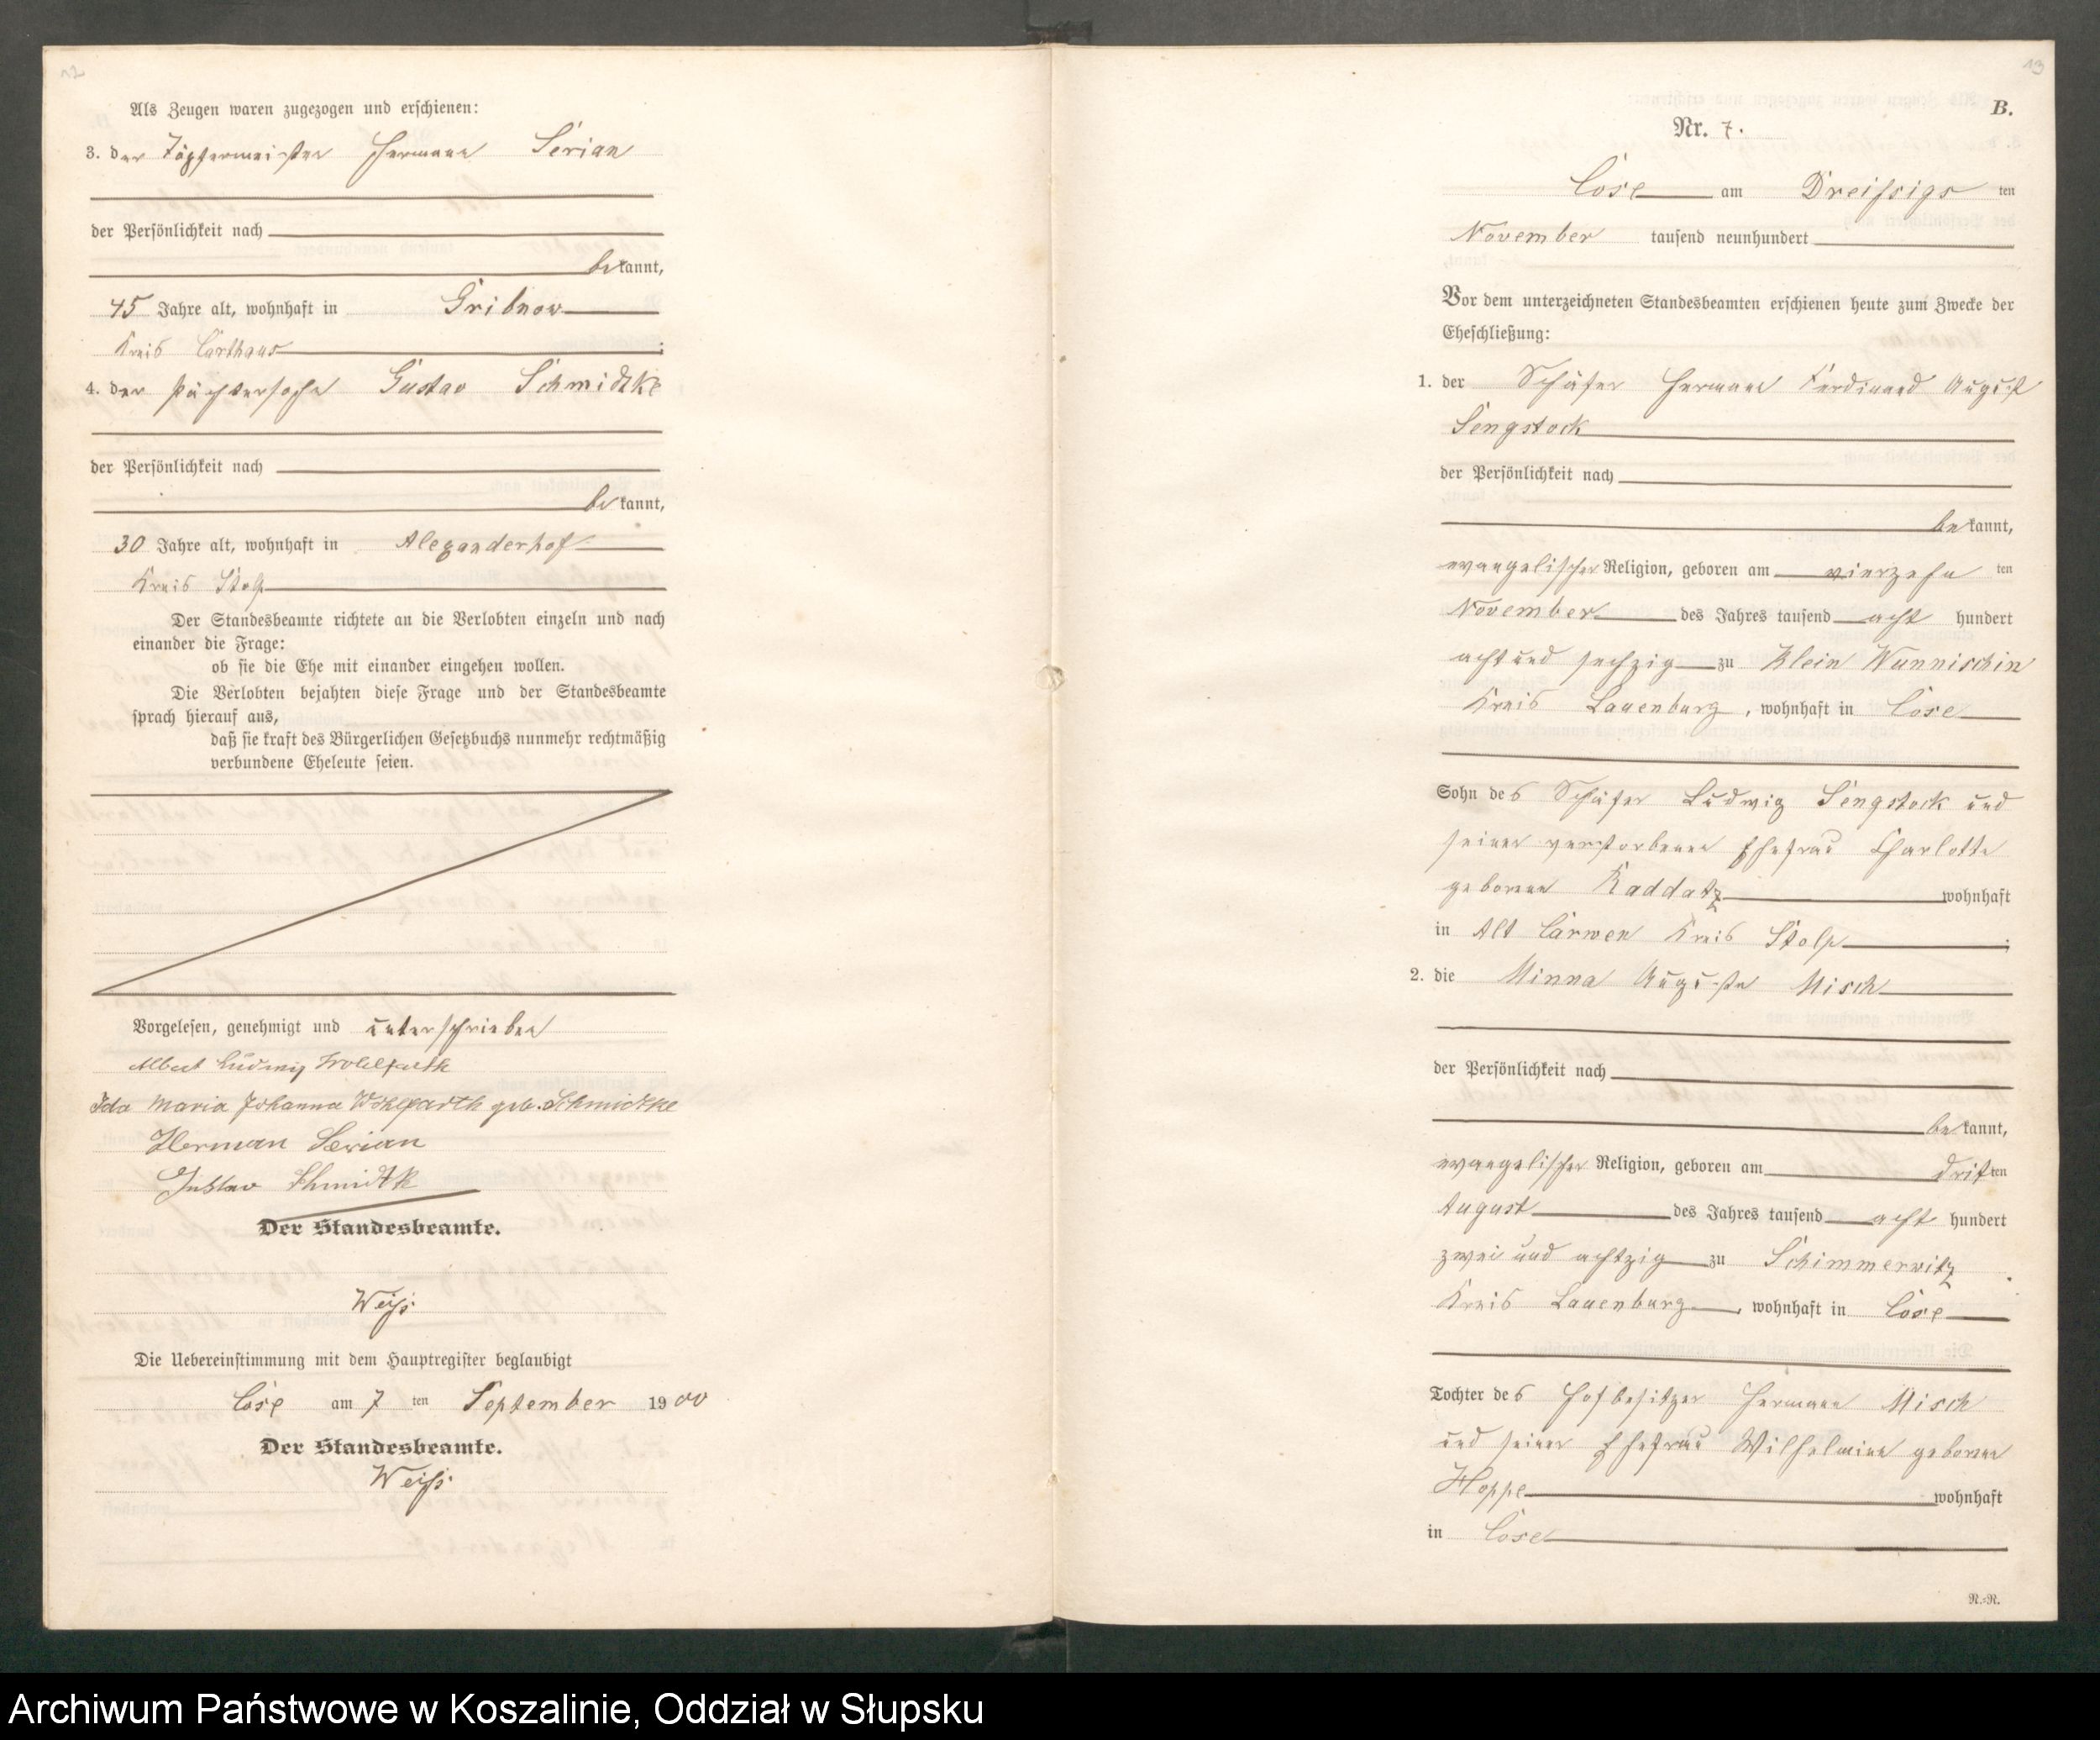 12
Als Zeugen waren zugezogen und erschienen:
3. der Töpfermeister Hermann Serian
der Persönlichkeit nach
bekannt,
45 Jahre alt, wohnhaft in Gribnow
Kreis Carthaus;
4. der Pächtersohn Gustav Schmidtke
der Persönlichkeit nach
bekannt,
30 Jahre alt, wohnhaft in Alexanderhof
Kreis Stolp
Der Standesbeamte richtete an die Verlobten einzeln und nach
einander die Frage:
ob sie die Ehe mit einander eingehen wollen.
Die Verlobten bejahten diese Frage und der Standesbeamte
sprach hierauf aus,
daß sie kraft des Bürgerlichen Gesetzbuchs nunmehr rechtmäßig
verbundene Eheleute seien.
Vorgelesen, genehmigt und unterschrieben
Albert Ludwig Wohlfarth
Ida Maria Johanna Wohlfarth geb. Schmidtke
Herman Serian
Gustav Schmidtk
Der Standesbeamte.
Weiß.
Die Uebereinstimmung mit dem Hauptregister beglaubigt
Cose am 7 ten September 1900
Der Standesbeamte.
Weiß.
13
B.
Nr. 7.
Cose am Dreißigsten
November tausend neunhundert
Vor dem unterzeichneten Standesbeamten erschienen heute zum Zwecke der
Eheschließung:
1. der Schäfer Hermann Ferdinand August
Sengstock
der Persönlichkeit nach
bekannt,
evangelischer Religion, geboren am vierzehnten
November des Jahres tausend acht hundert
acht und sechzig zu Klein Wunnischin
Kreis Lauenburg, wohnhaft in Cose
Sohn des Schäfer Ludwig Sengstock und
seiner verstorbenen Ehefrau Charlotte
geborene Raddatz wohnhaft
in Alt Carwen Kreis Stolp;
2. die Minna Auguste Misch
der Persönlichkeit nach
bekannt,
evangelischer Religion, geboren am dritten
August des Jahres tausend acht hundert
zwei und achtzig zu Schimmerwitz
Kreis Lauenburg, wohnhaft in Cose
Tochter des Hofbesitzer Hermann Misch
und seiner Ehefrau Wilhelmine geborene
Hoppe wohnhaft
in Cose
R.-R.
Archiwum Państwowe w Koszalinie, Oddział w Słupsku